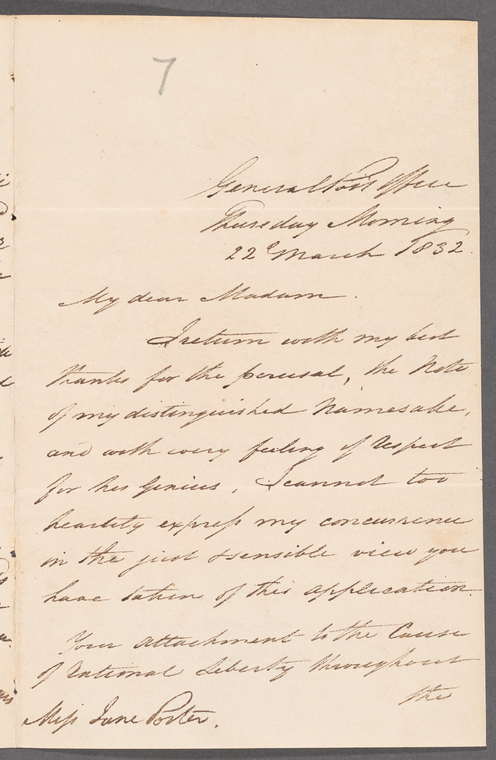 7
General Post Office
Thursday Morning
22d March 1832.
My dear Madam.
I return with my best
thanks for the perusal, the Note
of my distinguished Namesake,
and with every feeling of respect
for his Genius, I cannot too
heartily express my concurrence
in the just & sensible view you
have taken of this application.
Your attachment to the Cause
of rational Liberty throughout
the
Miss Jane Porter.